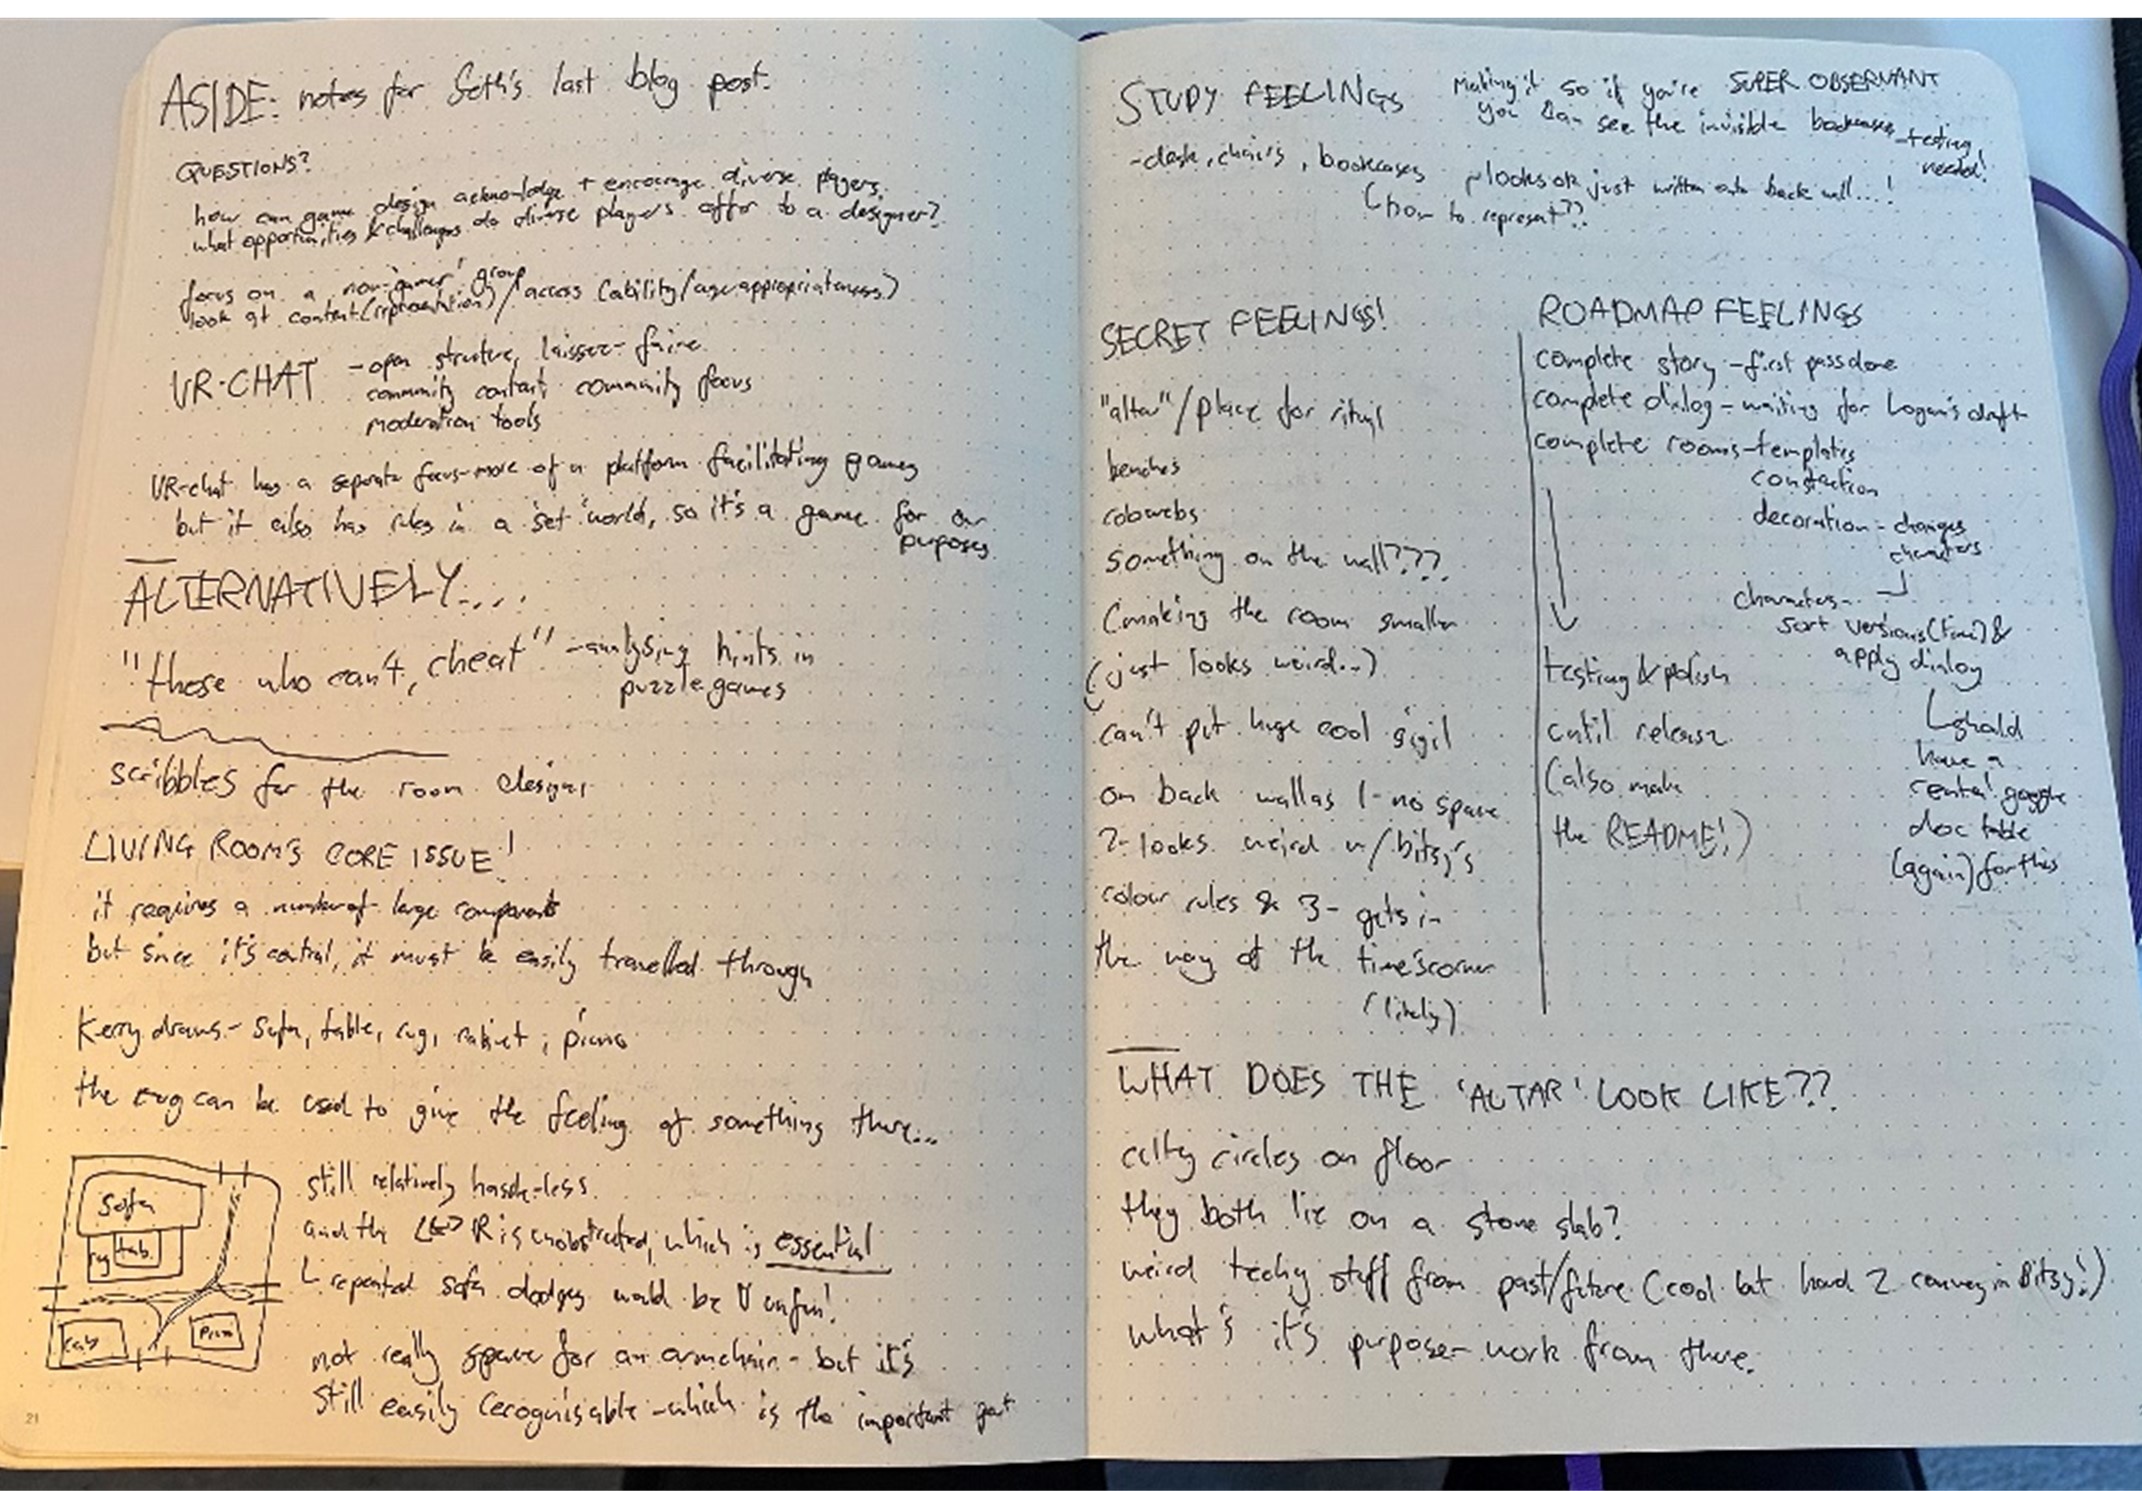 ASIDE: notes for Seth's last blog post.
QUESTIONS?
how can game design acknowledge + encourage diverse players.
what opportunities & challenges do diverse players offer to a designer?
focus on a non-'gamer' group
look at content (representation) / access (ability/age appropriateness)
VR-CHAT
-open structure, laissez-faire
community content community focus
moderation tools
VR-chat has a separate focus-more of a platform facilitating games
but it also has rules in a set 'world', so it's a game for our
purposes
ALTERNATIVELY...
"those who can't, cheat" -analysing hints in
puzzle games
scribbles for the room designs
LIVING ROOM'S CORE ISSUE!
it requires a number of large components
but since it's central, it must be easily travelled through
Kerry draws- sofa, table, rug, cabinet, piano
the rug can be used to give the feeling of something there...
sofa
rug tab.
cab
piano
still relatively hassle-less.
and the L↔R is unobstructed, which is essential
repeated sofa dodges would be unfun!
not really space for an armchair - but it's
still easily recognisable -which is the important part
21
STUDY FEELINGS
-desk, chairs, bookcases
(how to represent??
looks ok just written onto back wall...!
Making it so if you're SUPER OBSERVANT
you can see the invisible bookcases -testing
needed!
SECRET FEELINGS!
"altar"/place for ritual
benches
cobwebs
something on the wall???
(making the room smaller
just looks weird...)
can't put huge cool sigil
on back wall as 1- no space
2- looks weird w/ bitsy's
colour rules & 3- gets in
the way of the time's corner
(likely)
ROADMAP FEELINGS
complete story -first pass done
complete dialog - waiting for Logan's draft
complete rooms-templates
construction
decoration - changes
characters
characters-
sort versions (time) &
apply dialog
should
have a
central google
doc table
(again) for this
testing & polish
until release
(also make
the README!)
WHAT DOES THE 'ALTAR' LOOK LIKE??
culty circles on floor
they both lie on a stone slab?
weird techy stuff from past/future (cool but hard 2 convey in Bitsy!)
what's it's purpose- work from there.